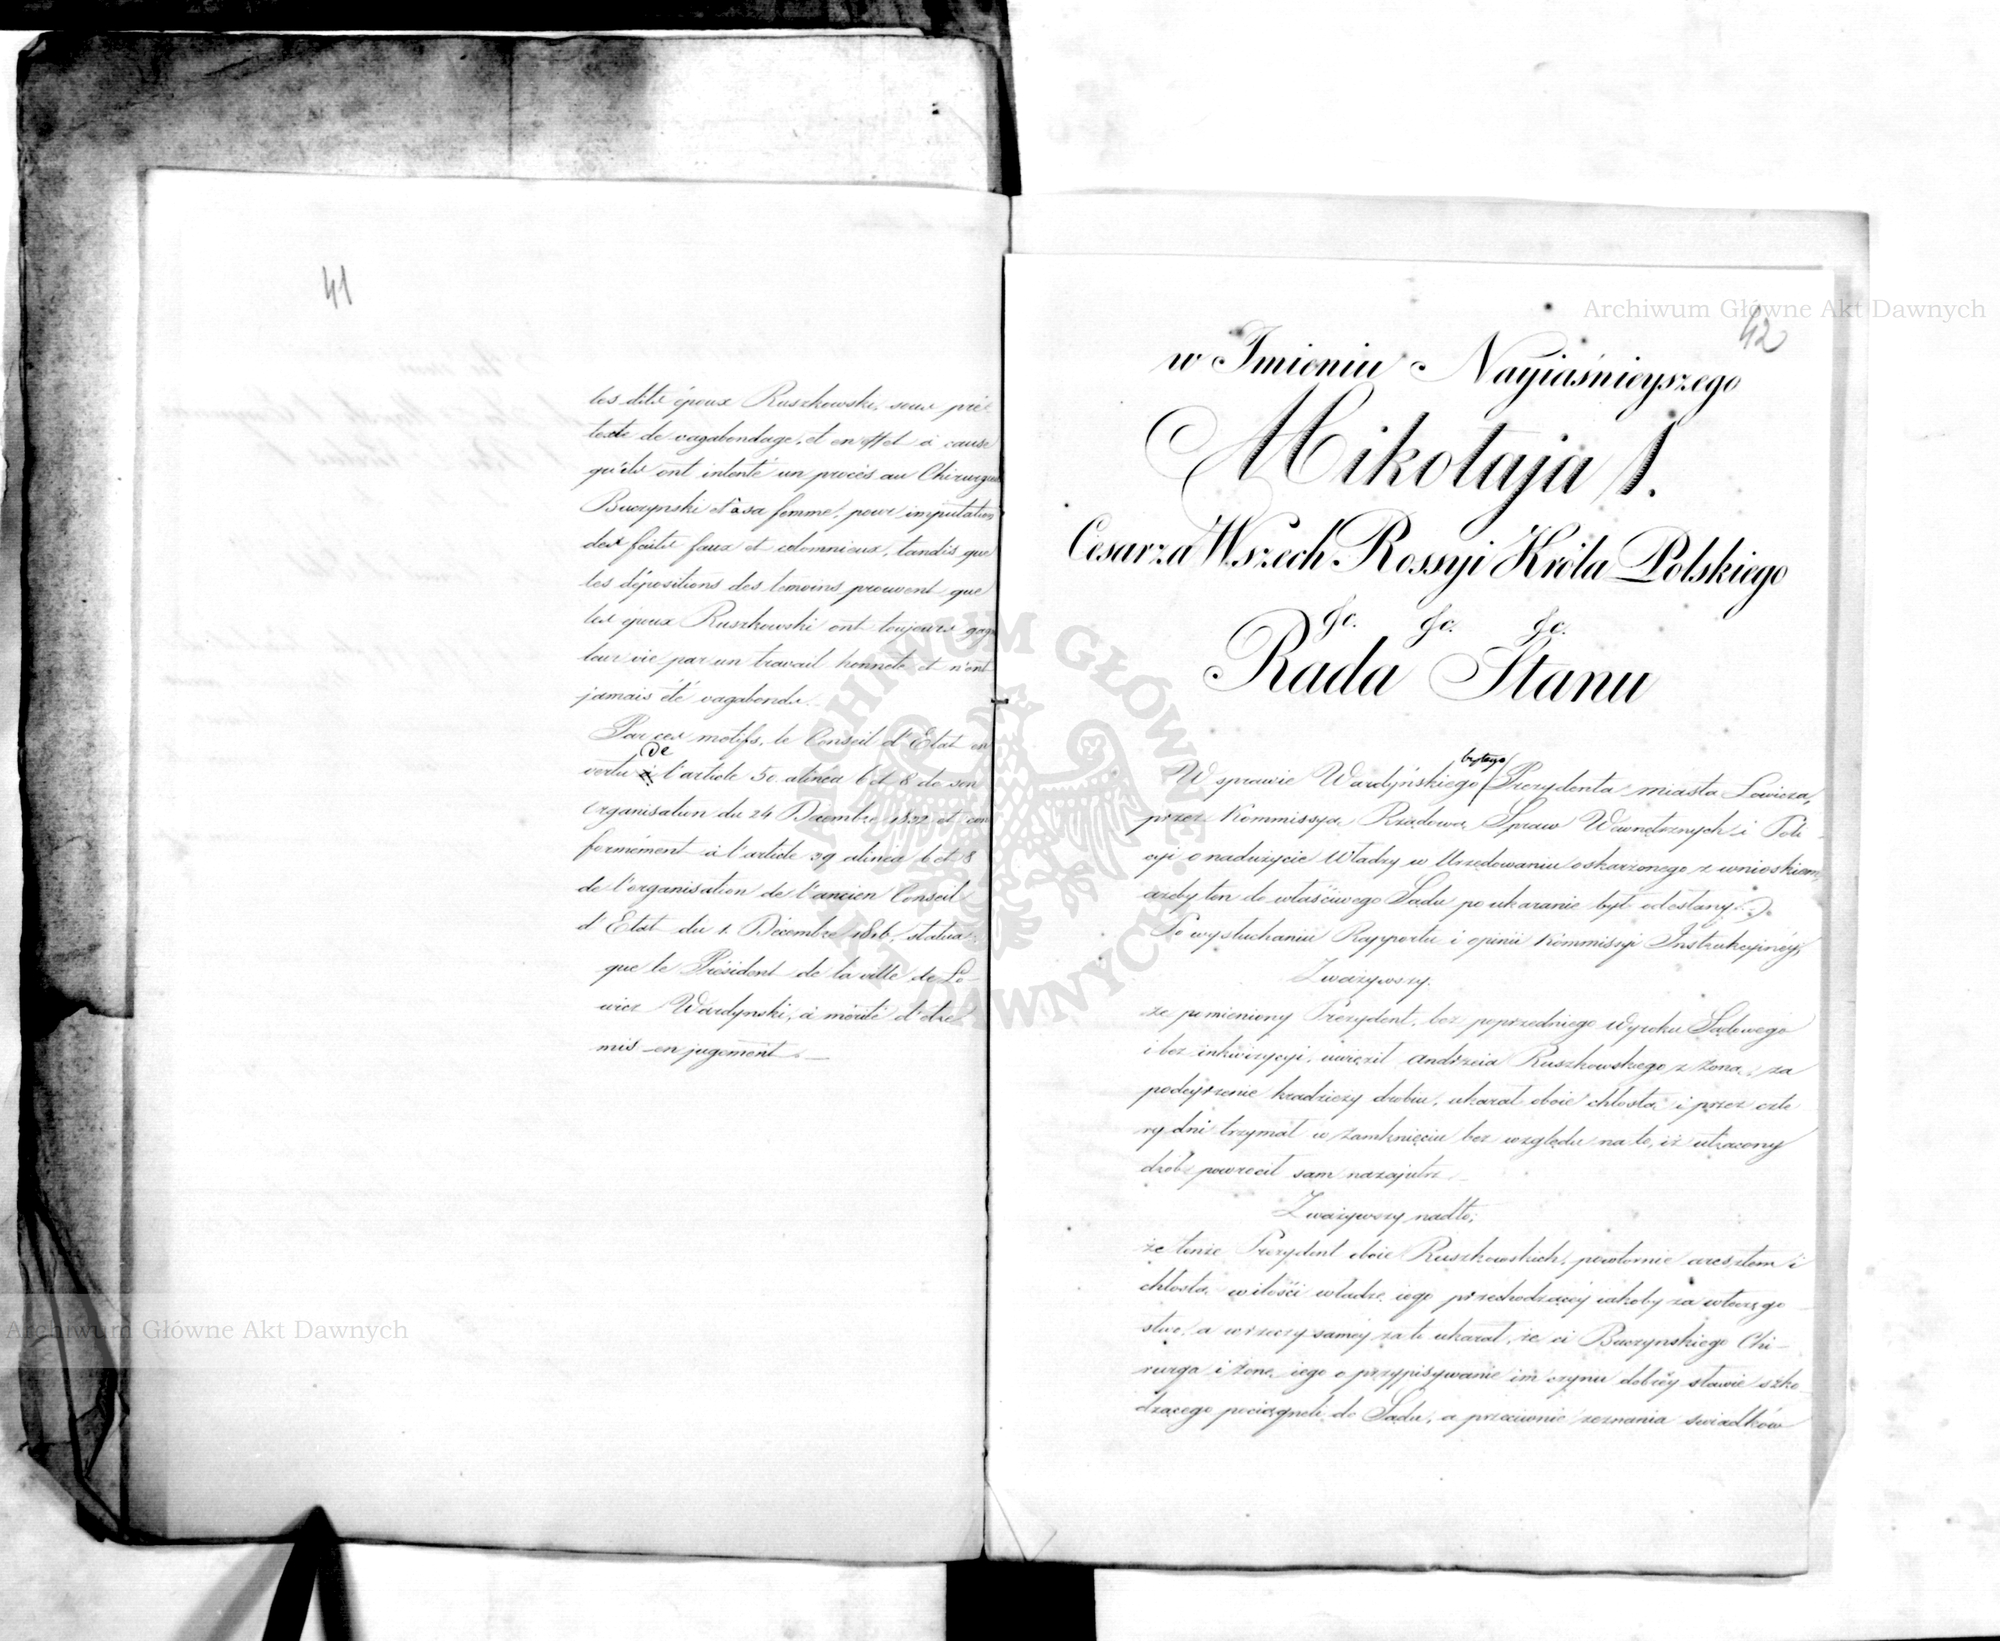 41
les dits époux Ruszkowski, sous pré-
texte de vagabondage, et en effet à cause
qu'ils ont intenté un procès au Chirurgien
Buczynski et à sa femme, pour imputation
des faits faux et colomnieux, tandis que
les dépositions des temoins prouvent que
les époux Ruszkowski ont toujours gagn
leur vie par un travail honnete et n'ont
jamais été vagabonds.
Par ces motifs, le Conseil d'Etat en
vertu de l'article 50 alinéa 6 et 8 de son
Organisation du 24 Decembre 1832 et con
formément à l'article 39 alinéa 6 et 8
de l'organisation de l'ancien Conseil
d'Etat du 1. Décembre 1816, statua:
que le Président de la ville de Lo-
wicz Wardynski, a mérité d'être
mis en jugement.
42
w Imieniu Nayiaśnieyszego
Mikołaja I.
Cesarza Wszech Rossyi Króla Polskiego
&c. &c. &c.
Rada Stanu
W sprawie Wardyńskiego byłego Prezydenta miasta Łowicza,
przez Kommissyą Rządową Spraw Wewnętrznych i Poli-
cyi o nadużycie Władzy w Urzędowaniu oskarżonego z wnioskiem,
ażeby ten do właściwego Sądu po ukaranie był odesłany.
Po wysłuchaniu Rapportu i opinii Kommissyi Instrukcyinéy,
Zważywszy.
że pomieniony Prezydent, bez poprzedniego Wyroku Sądowego
i bez inkwizycyi, uwięził Andrzeia Ruszkowskiego z żoną, za
podeyrzenie kradzieży drobiu, ukarał oboie chłostą i przez czte
ry dni trzymał w zamknięciu bez względu na to, iż utracony
drób powrócił sam nazajutrz.
Zważywszy nadto;
że tenże Prezydent oboie Ruszkowskich, powtórnie aresztem i
chłostą w ilości władzę iego przechodzącéy iakoby za włóczęgo
stwo, a w rzeczy saméy za to ukarał, że ci Buczynskiego Chi-
rurga i żonę iego o przypisywanie im czynu dobréy sławie szko
dzącego pociągnęli do Sądu, a przeciwnie zeznania świadków
Archiwum Główne Akt Dawnych
Archiwum Główne Akt Dawnych
ARCHIWUM GŁÓWNE AKT DAWNYCH